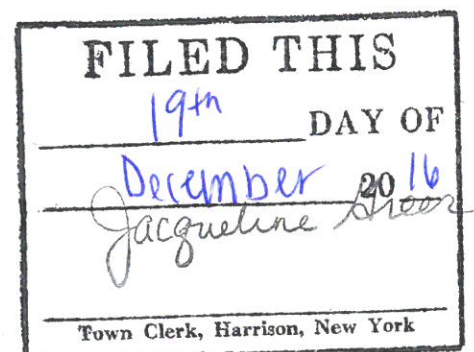 FILED THIS
19th DAY OF
December 2016
Jacqueline
Town Clerk, Harrison, New York